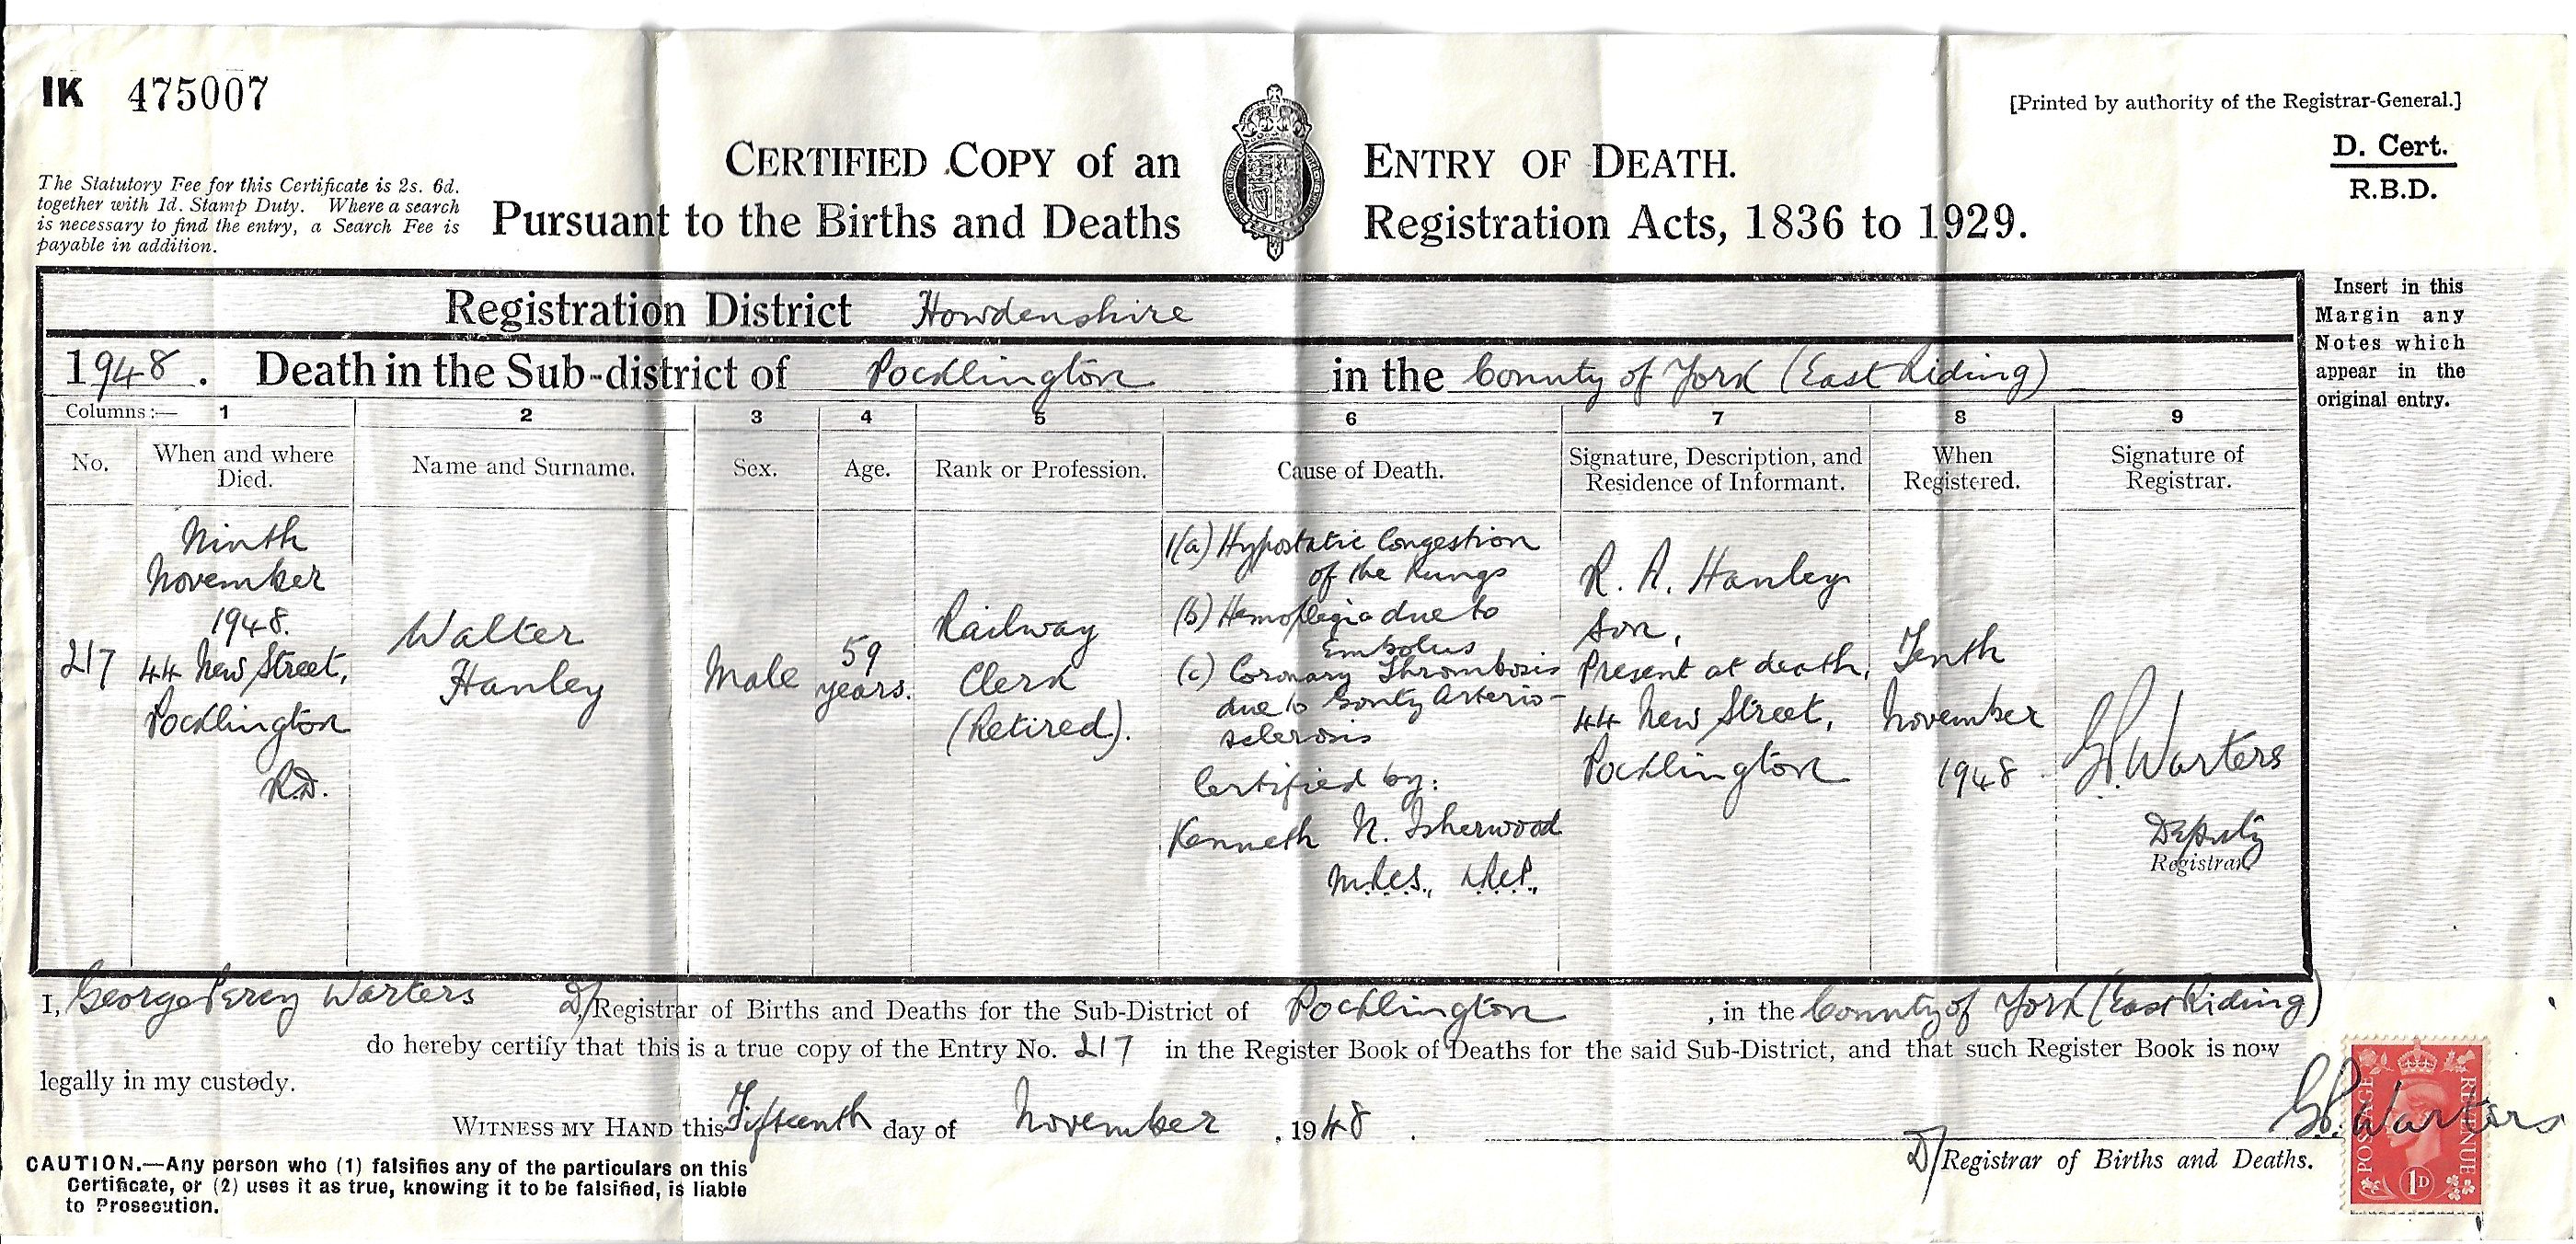 IK 475007
[Printed by authority of the Registrar-General.]
D. Cert.
R.B.D.
The Statutory Fee for this Certificate is 2s. 6d.
together with 1d. Stamp Duty. Where a search
is necessary to find the entry, a Search Fee is
payable in addition.
CERTIFIED COPY of an ENTRY OF DEATH.
Pursuant to the Births and Deaths Registration Acts, 1836 to 1929.
Insert in this
Margin any
Notes which
appear in the
original entry.
Registration District Howdenshire
1948. Death in the Sub-district of Pocklington in the County of York (East Riding)
Columns:— 1 2 3 4 5 6 7 8 9
No.
When and where
Died.
Name and Surname.
Sex.
Age.
Rank or Profession.
Cause of Death.
Signature, Description, and
Residence of Informant.
When
Registered.
Signature of
Registrar.
217
Ninth
November
1948.
44 New Street,
Pocklington
R.D.
Walter
Hanley
Male
59
years.
Railway
Clerk
(Retired).
1(a) Hypostatic Congestion
of the Lungs
(b) Hemoplegia due to
Embolus
(c) Coronary Thrombosis
due to Gouty Arterio-
sclerosis
Certified by:
Kenneth N. Isherwood
M.R.C.S., L.R.C.P.,
R. A. Hanley
Son,
Present at death,
44 New Street,
Pocklington
Tenth
November
1948
G.P. Warters
Deputy
Registrar.
I, George Percy Warters D/Registrar of Births and Deaths for the Sub-District of Pocklington, in the County of York (East Riding)
do hereby certify that this is a true copy of the Entry No. 217 in the Register Book of Deaths for the said Sub-District, and that such Register Book is now
legally in my custody.
WITNESS MY HAND this Fifteenth day of November, 1948.
G.P. Warters
D/Registrar of Births and Deaths.
POSTAGE REVENUE
1D
CAUTION.—Any person who (1) falsifies any of the particulars on this
Certificate, or (2) uses it as true, knowing it to be falsified, is liable
to Prosecution.